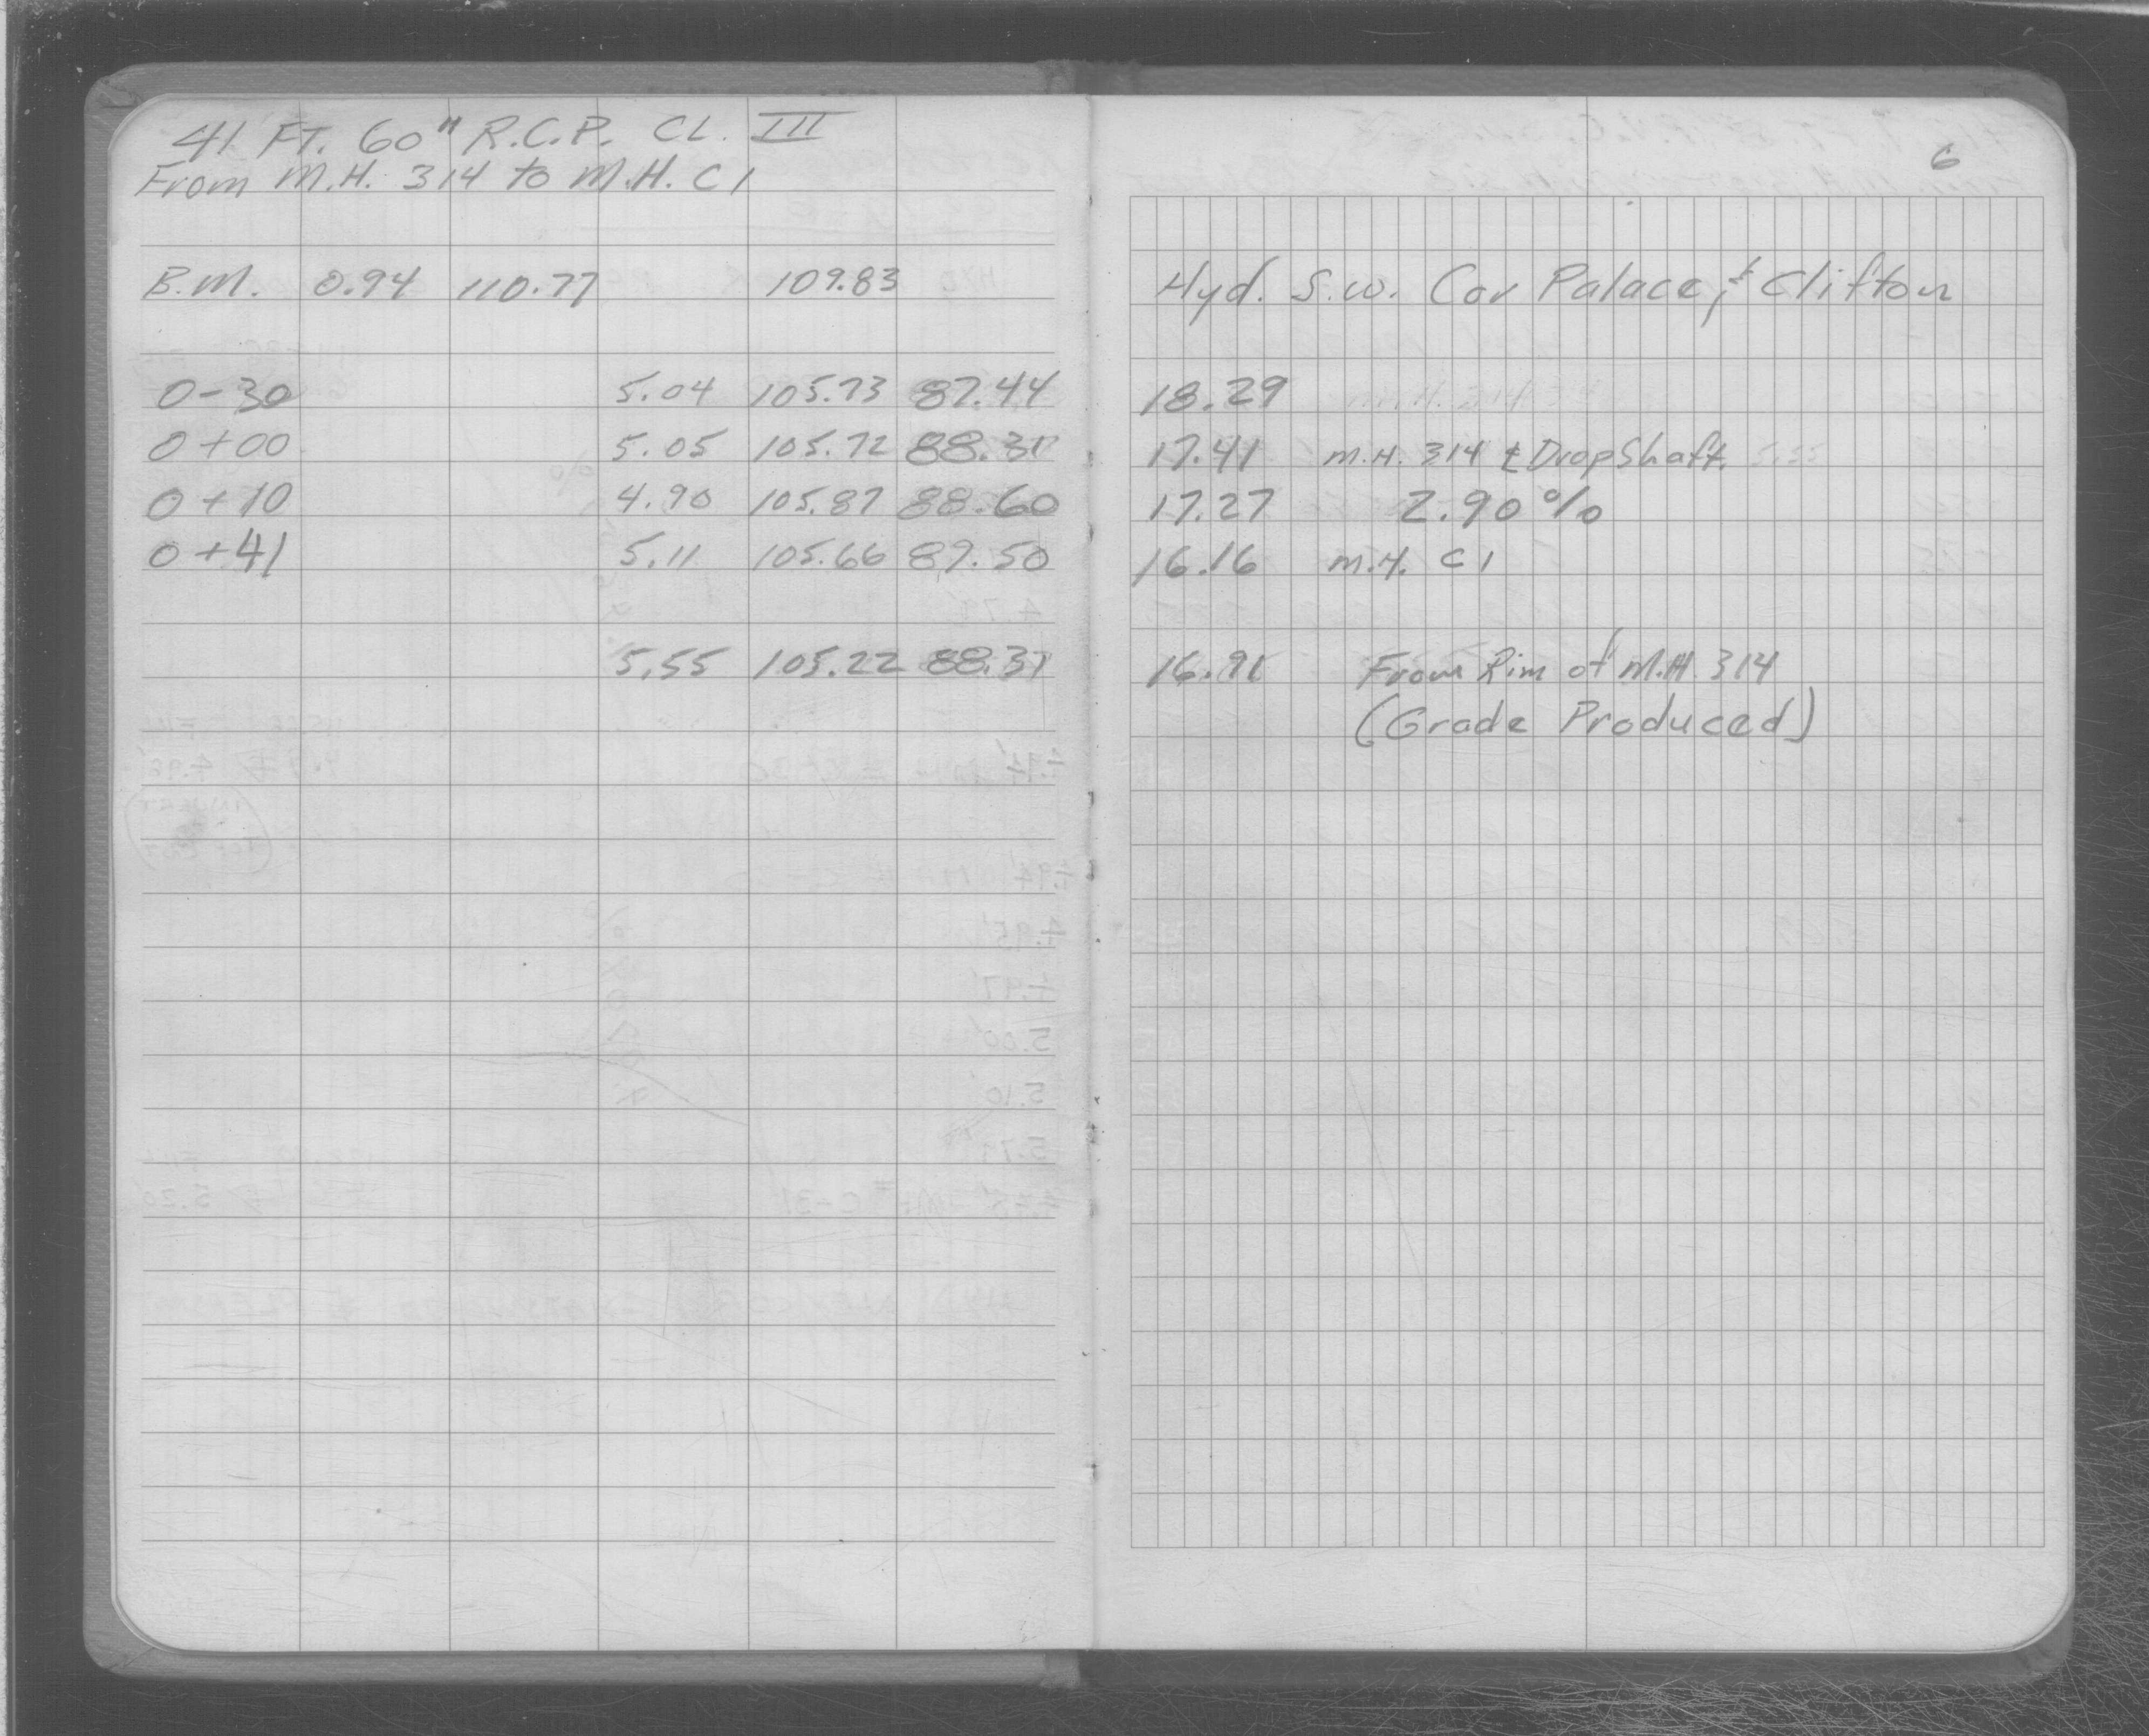 41 FT. 60" R.C.P. CL. III
From M.H. 314 to M.H. C1
B.M. 0.94 110.77 109.83
0-30 5.04 105.73 87.44
0+00 5.05 105.72 88.31
0+10 4.90 105.87 88.60
0+41 5.11 105.66 89.50
5.55 105.22 88.31
6
Hyd. S.W. Cor Palace & Clifton
18.29
17.41 M.H. 314 ± DropShaft
17.27 2.90%
16.16 M.H. C1
16.91 From Rim of M.H. 314
(Grade Produced)